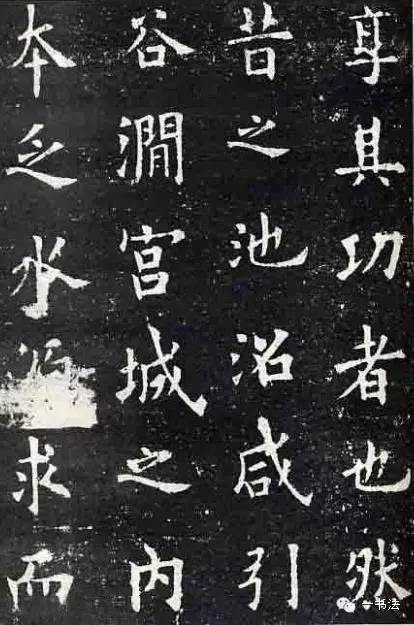 享其功者也然
昔之池沼咸引
谷澗宮城之內
本乏水求而
一书法